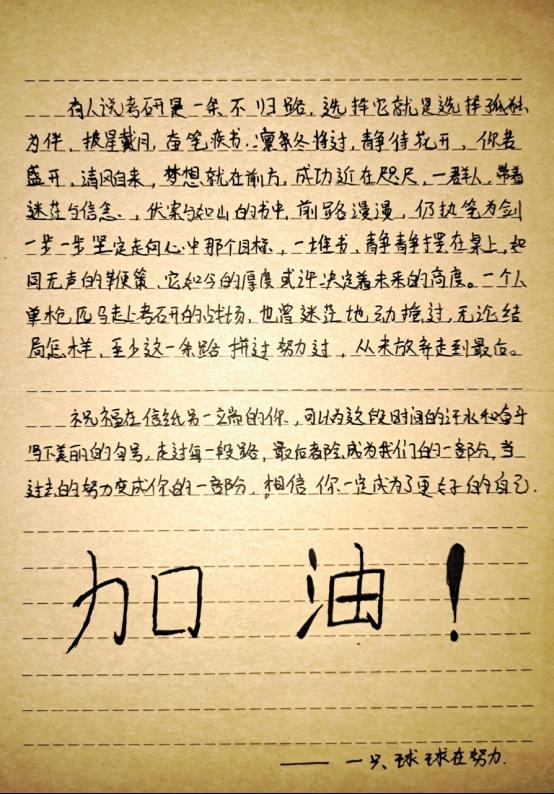 有人说考研是一条不归路，选择它就是选择孤独
为伴，披星戴月，奋笔疾书，凛冬将过，静待花开，你若
盛开，清风自来，梦想就在前方，成功近在咫尺，一群人，带着
迷茫与信念，伏案与如山的书中，前路漫漫，仍执笔为剑
一步一步坚定走向心中那个目标，一堆书，静静摆在桌上，如
同无声的鞭策，它如今的厚度或许决定着未来的高度。一个人
单枪匹马走上考研的战场，也曾迷茫地动摇过，无论结
局怎样，至少这一条路拼过努力过，从未放弃走到最后。
祝福在信纸另一端的你，可以为这段时间的汗水和奋斗
写下美丽的句号，走过每一段路，最后都会成为我们的一部分，当
过去的努力变成你的一部分，相信你一定成为了更好的自己．
加油！
——一只球球在努力．